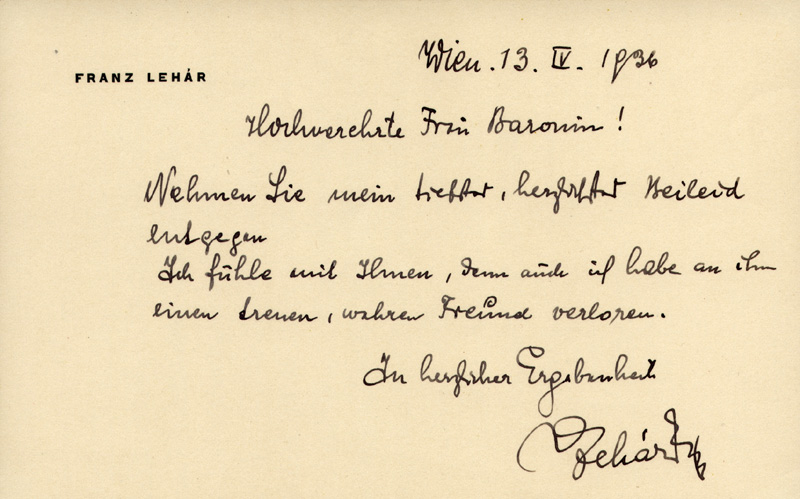 FRANZ LEHÁR
Wien. 13. IV. 1936
Hochverehrte Frau Baronin!
Nehmen Sie mein tiefstes, herzlichstes Beileid
entgegen
Ich fühle mit Ihnen, denn auch ich habe an ihm
einen treuen, wahren Freund verloren.
In herzlicher Ergebenheit
Lehár